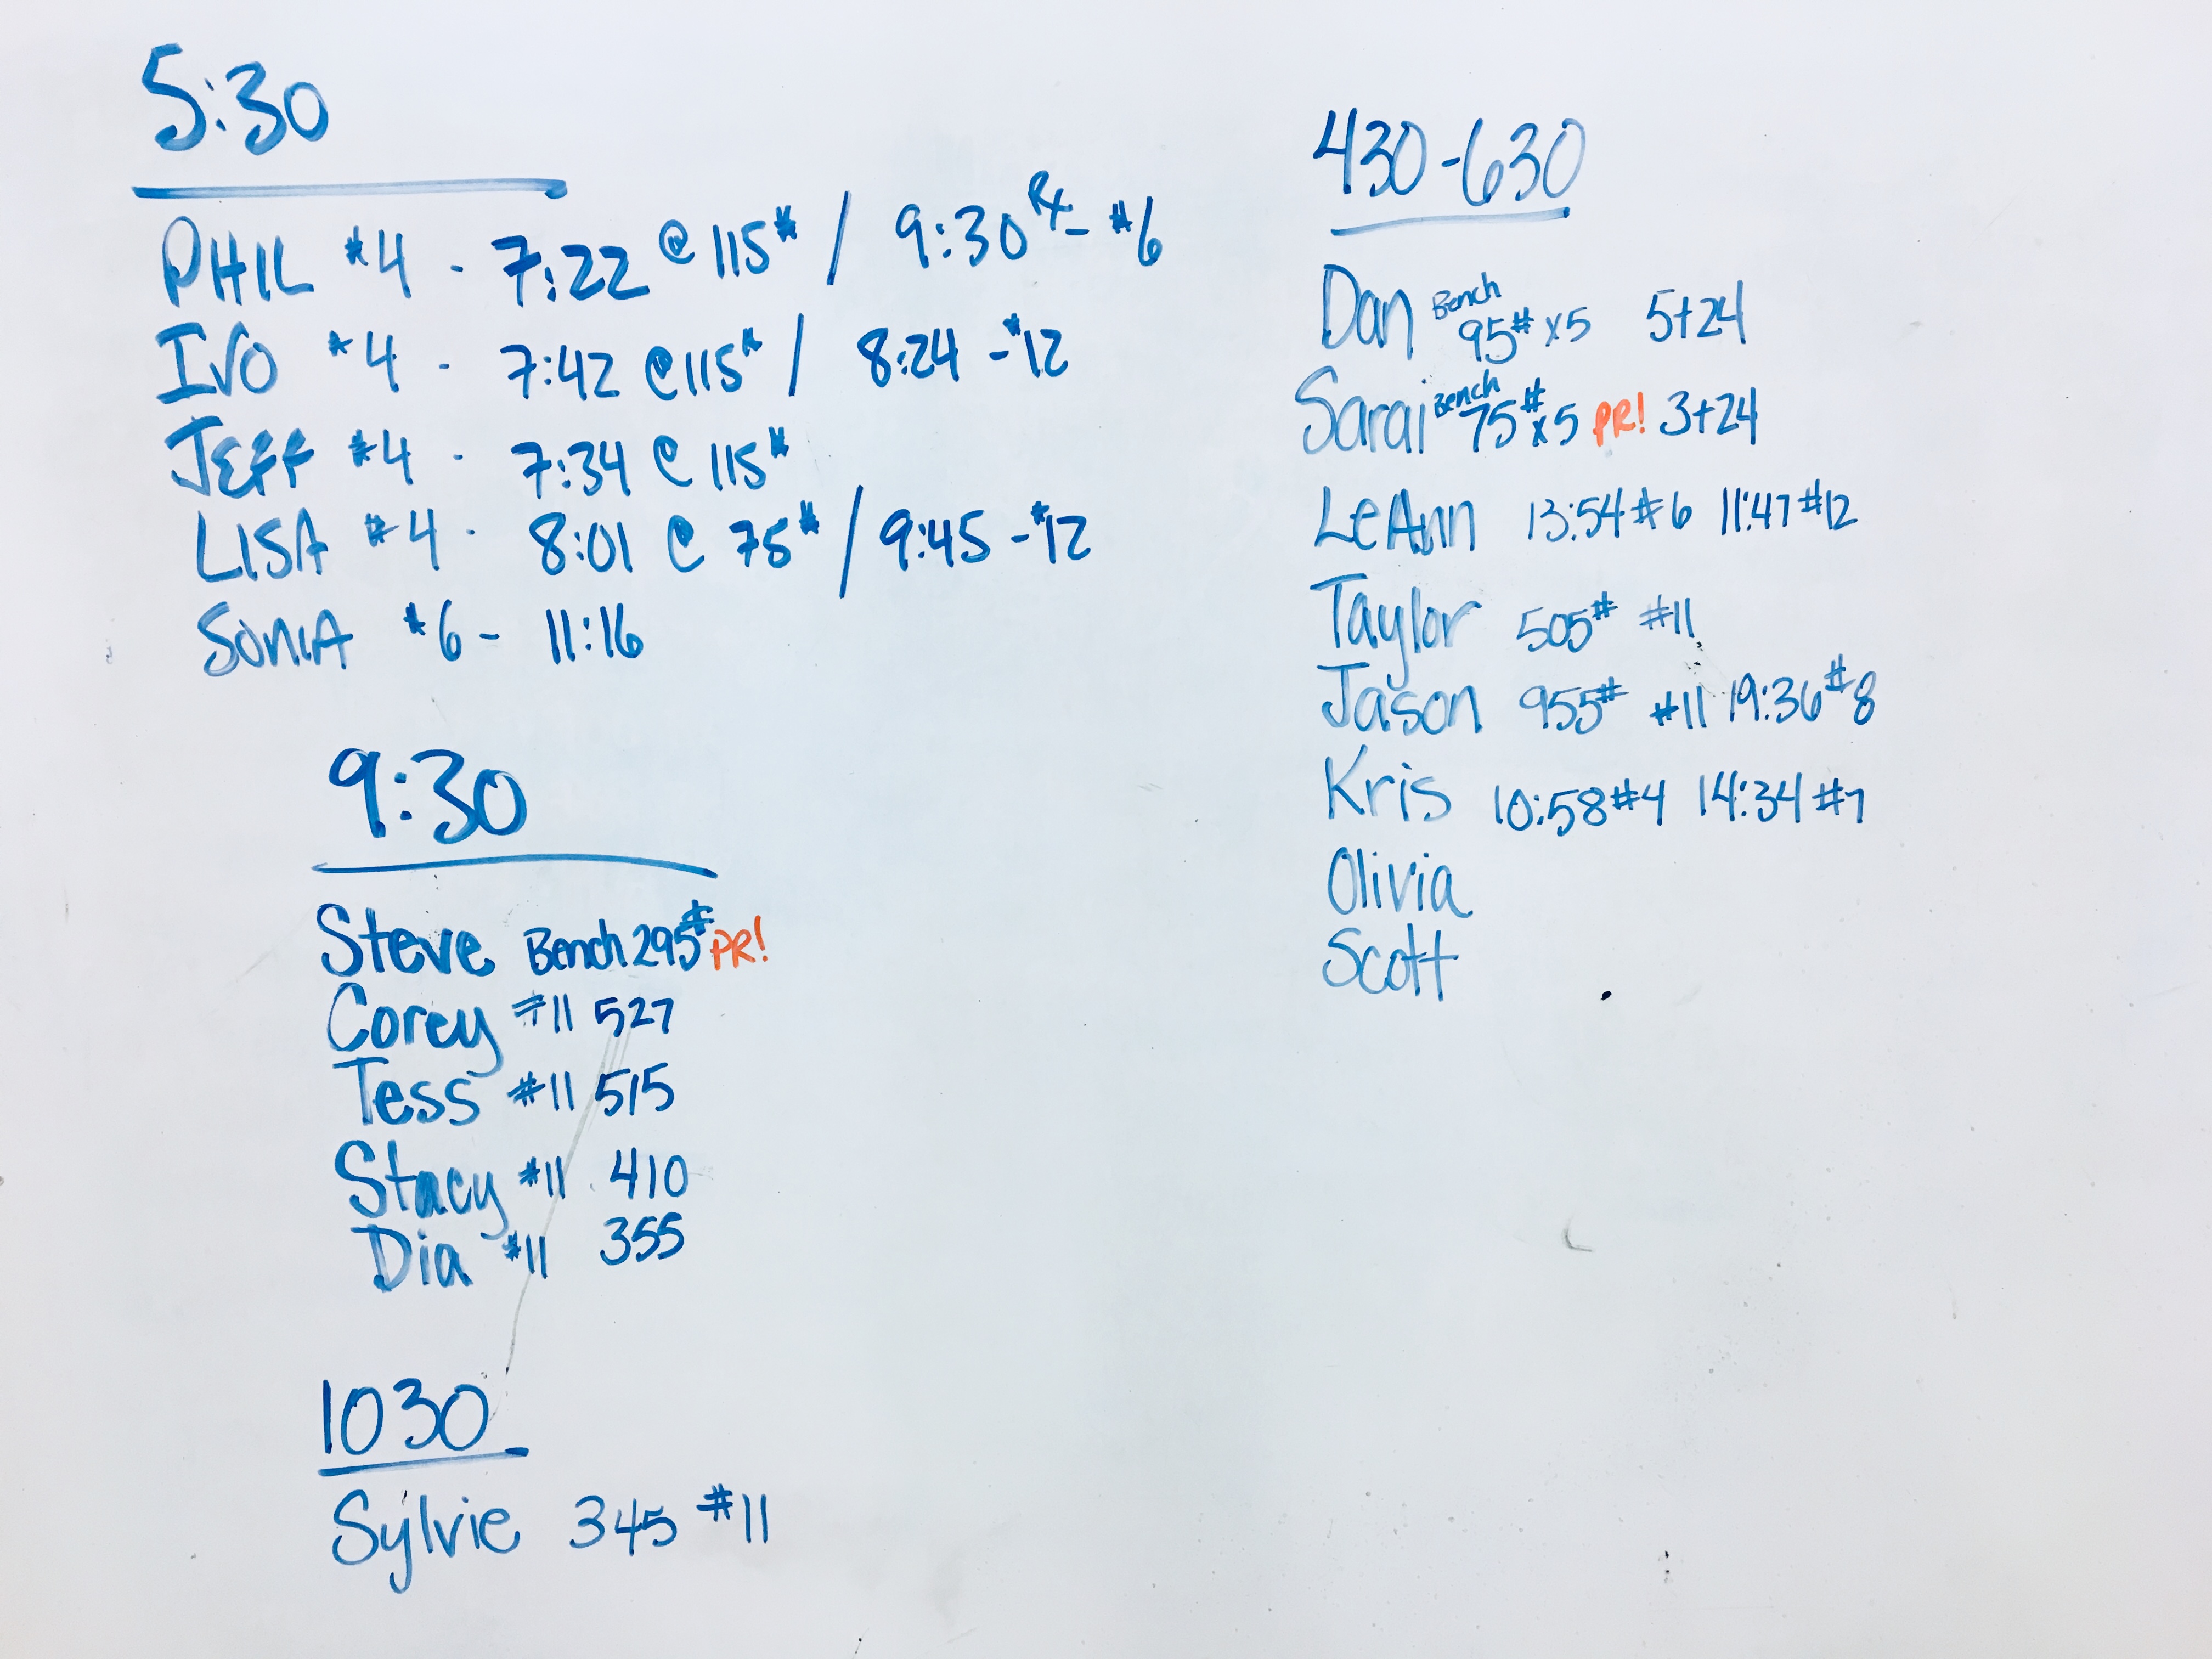 5:30
PHIL #4 - 7:22 @ 115# / 9:30 Rx - #6
IVO #4 - 7:42 @ 115# / 8:24 - #12
JEFF #4 - 7:34 @ 115#
LISA #4 - 8:01 @ 75# / 9:45 - #12
SONIA #6 - 11:16
9:30
Steve Bench 295# PR!
Corey #11 527
Tess #11 515
Stacy #11 410
Dia #11 355
1030
Sylvie 345 #11
430-630
Dan Bench 95# x5 5+24
Sarai Bench 75# x5 PR! 3+24
LeAnn 13:54 #6 11:47 #12
Taylor 505# #11
Jason 955# #11 19:36 #8
Kris 10:58 #4 14:34 #7
Olivia
Scott